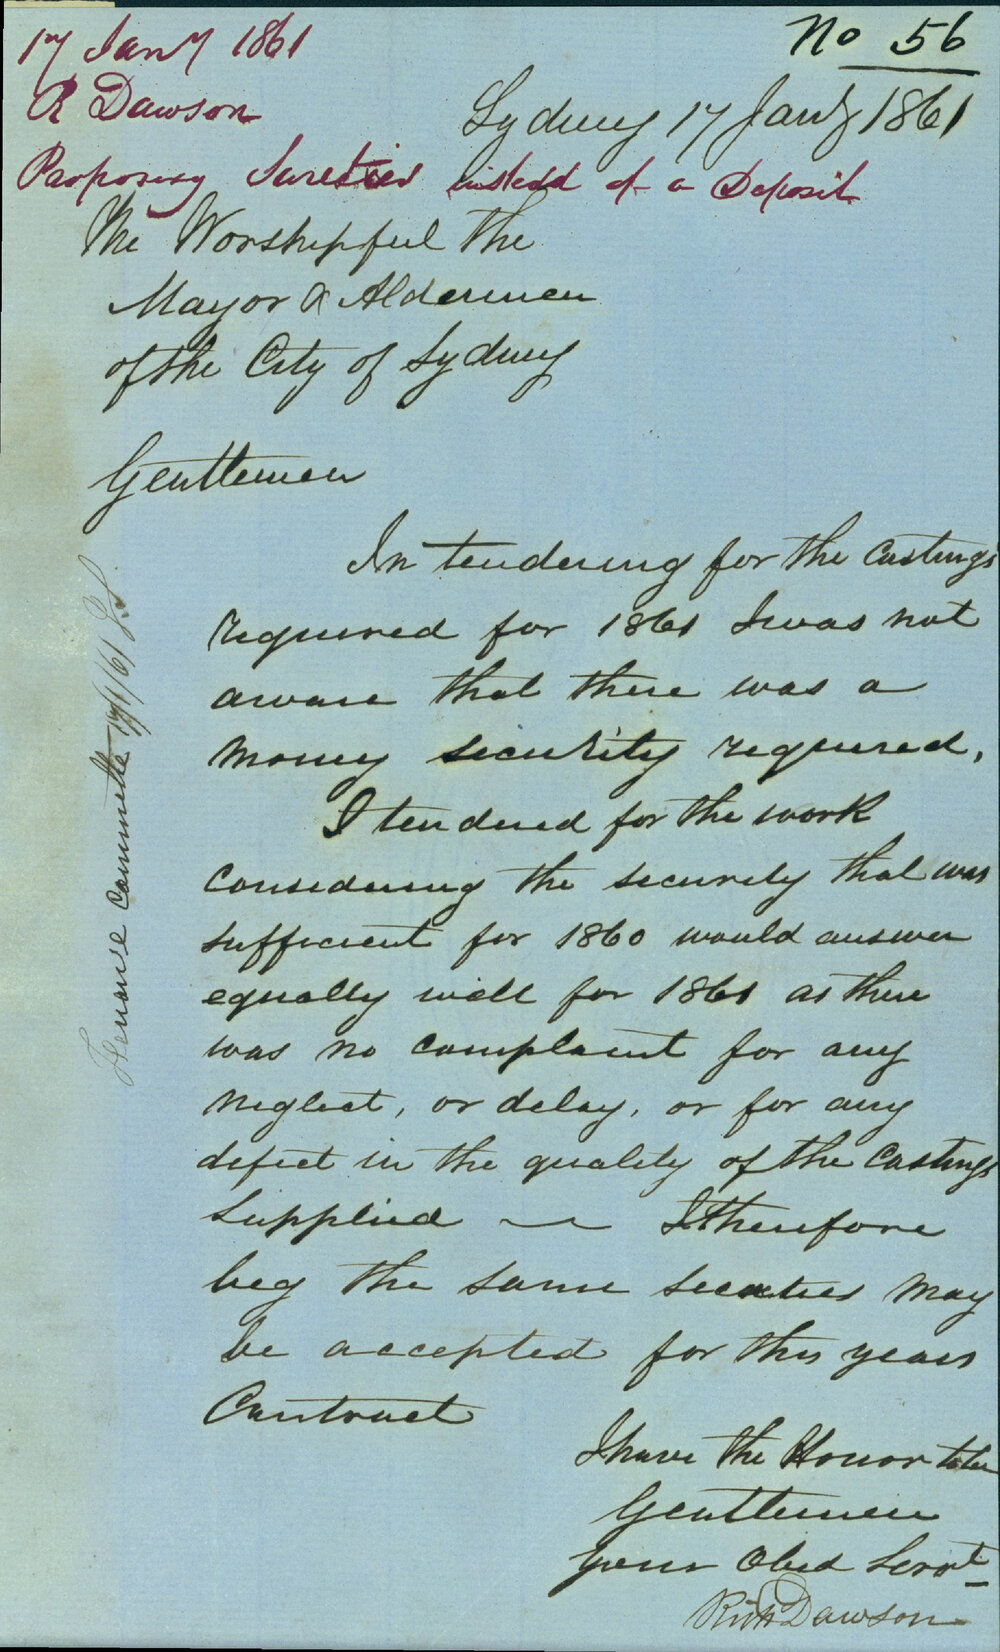 17 Jany 1861
No 56
R Dawson
Sydney 17 Jany 1861
Proposing Sureties instead of a Deposit
The Worshipful the
Mayor & Aldermen
of the City of Sydney
Gentlemen
In tendering for the Castings
required for 1861 I was not
aware that there was a
money security required,
I tendered for the work
considering the security that was
sufficient for 1860 would answer
equally well for 1861 as there
was no complaint for any
neglect, or delay, or for any
defect in the quality of the Castings
Supplied — I therefore
beg the same secuties may
be accepted for this years
Contract
I have the Honor to be
Gentlemen
your Obed Servt
Richd Dawson
Finance Committee 17/1/61